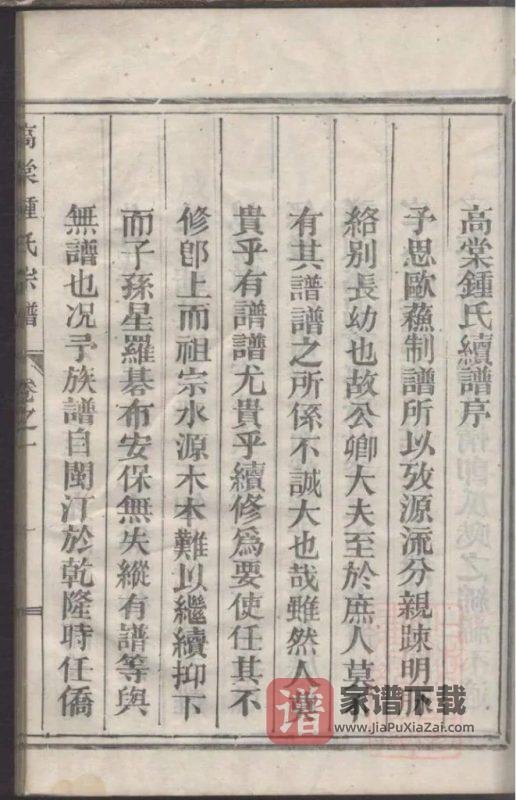 高棠鍾氏續譜序
予思歐蘇制譜所以攷源流分親疎明脈
絡別長幼也故公卿大夫至於庶人莫不
有其譜譜之所係不誠大也哉雖然人莫
貴乎有譜譜尤貴乎續修爲要使任其不
修卽上而祖宗水源木本難以繼續抑下
而子孫星羅碁布安保無失縱有譜等與
無譜也况予族譜自閩汀於乾隆時任僑
高棠鍾氏宗譜 卷之一
谱 家谱下载
www.JiaPuXiaZai.com